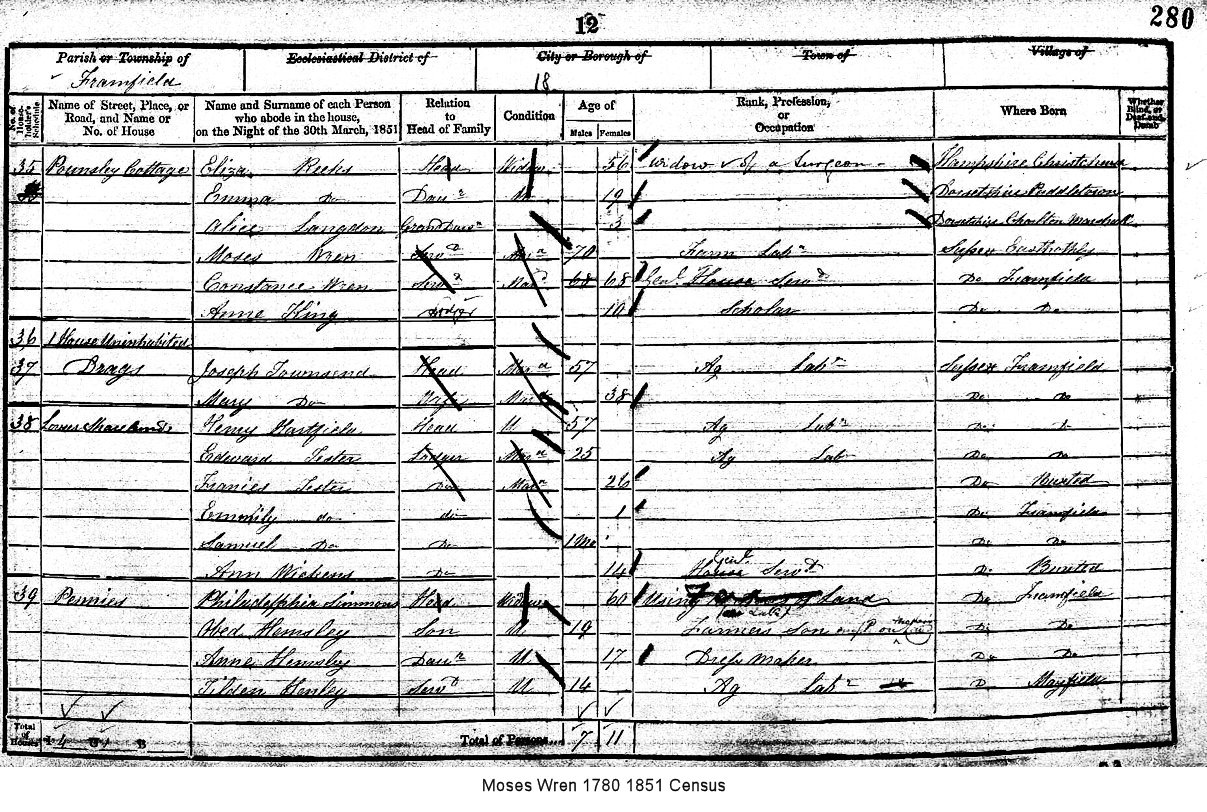 280
12
Parish or Township of Ecclesiastical District of City or Borough of Town of Village of
Framfield 18
No. of House-holder's Schedule Name of Street, Place, or Road, and Name or No. of House Name and Surname of each Person who abode in the house, on the Night of the 30th March, 1851 Relation to Head of Family Condition Age of Males Females Rank, Profession, or Occupation Where Born Whether Blind, or Deaf-and-Dumb
35 Pounsley Cottage Eliza Reeks Head Widow 56 Widow of a Surgeon Hampshire Christchurch
Emma Do Daur 19 Dorsetshire Puddletown
Alice Langdon Grand Daur 3 Dorsetshire Charlton Marshall
Moses Wren Servt Mard 70 Farm Labr Sussex
Constance Wren Servt Mard 68 68 Genl House Servt Do Framfield
Anne King 10 Scholar Do Do
36 1 House Uninhabited
37 Brags Joseph Townsend Head Mard 57 Ag Labr Sussex Framfield
Mary Do Wife Mard 38 Do Do
38 Lower Henry Hartfield Head U 57 Ag Labr Do
Edward Tester Lodger Mard 25 Ag Lab Do Do
Frances Tester Do Mard 26 Do Buxted
Emmily do do 1 Do Framfield
Samuel Do Do 1 Mo Do Do
Ann Wickens Do 14 Genl House Servt Do Buxted
39 Pennies Philadelphia Simmons Head Widow 60 Using Land Do Framfield
Obed Hemsley Son U 19 Farmers Son Do Do
Anne Hemsley Daur U 17 Dress Maker Do Do
Tilden Henley Servt U 14 Ag Labr Do Mayfield
Total of Houses 4 U 1 B Total of Persons... 7 11
Moses Wren 1780 1851 Census